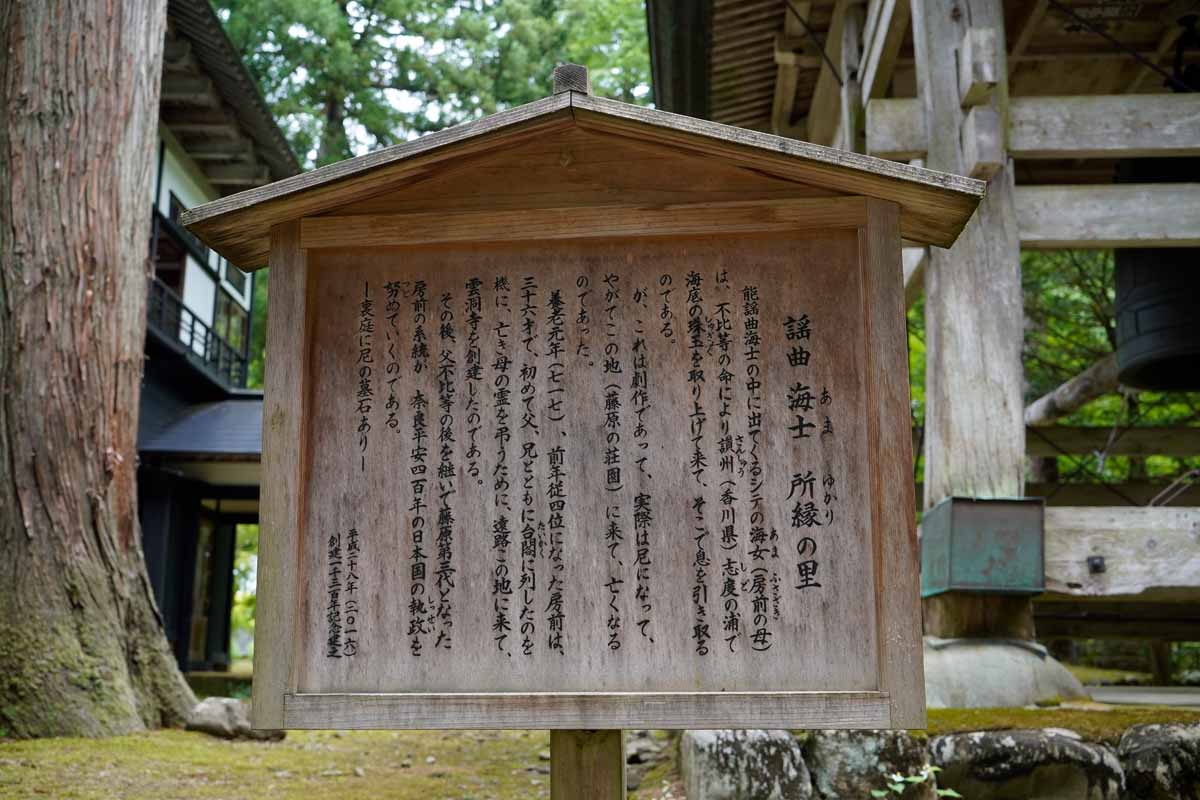 謡曲 海士 所縁の里
あま ゆかり
能謡曲海士の中に出てくるシテの海女(房前の母)
あま ふさざき
は、不比等の命により讃州(香川県)志度の浦で
さんしゅう しど
海底の珠玉を取り上げて来て、そこで息を引き取る
しゅぎょく
のである。
が、これは劇作であって、実際は尼になって、
やがてこの地(藤原の荘園)に来て、亡くなる
のであった。
養老元年(七一七)、前年従四位になった房前は、
三十六才で、初めて父、兄とともに台閣に列したのを
たいかく
機に、亡き母の霊を弔うために、遠路この地に来て、
雲洞寺を創建したのである。
その後、父不比等の後を継いで藤原第三代となった
房前の系統が、奈良平安四百年の日本国の執政を
しっせい
努めていくのである。
ー裏庭に尼の墓石ありー
平成二十八年(二〇一六)
創建一千三百年記念建之